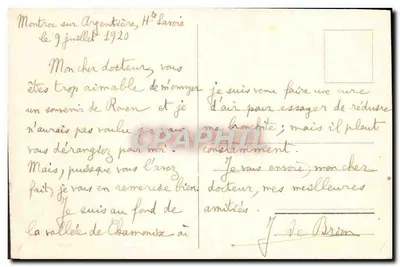 Montroc sur Argentière, Hte Savoie
le 9 juillet 1920
Mon cher docteur, vous
êtes trop aimable de m'envoyer
un souvenir de Rouen et je
n'aurais pas voulu vous
vous dérangiez pour moi.
Mais, puisque vous l'avez
fait, je vous en remercie bien.
Je suis au fond de
la vallée de Chamonix où
je suis venu faire une cure
d'air pour essayer de réduire
ma bronchite; mais il pleut
constamment.
Je vous envoie, mon cher
docteur, mes meilleures
amitiés.
J. de